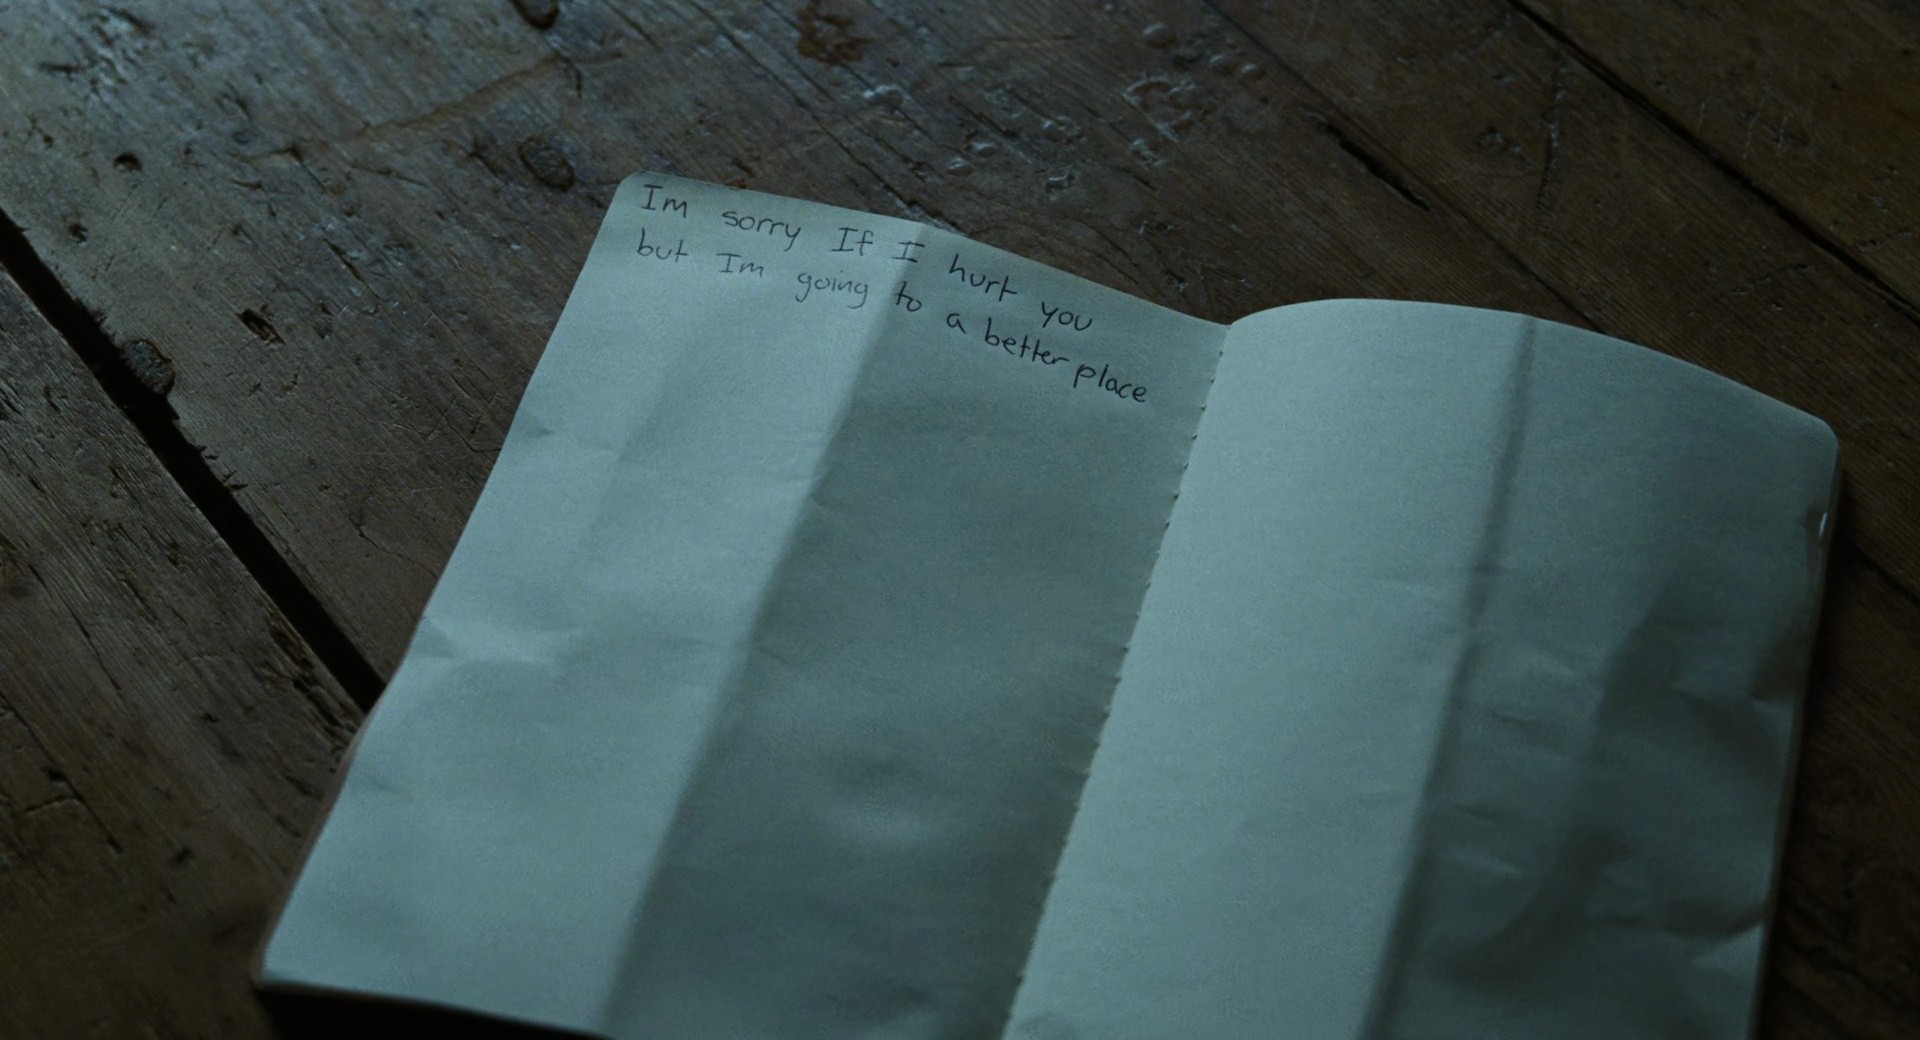 Im sorry If I hurt you
but Im going to a better place